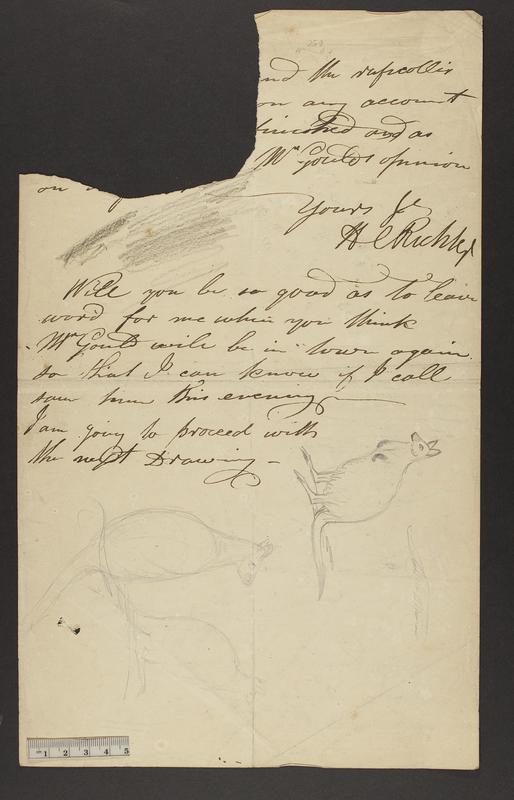 and the ruficollis
on any account
finished and as
Mr Goulds opinion
on
Yours &c
H C Richter
Will you be so good as to leave
word for me when you think
Mr Gould will be in town again
so that I can know if I call
this evening
I am going to proceed with
the next Drawing -
1 2 3 4 5